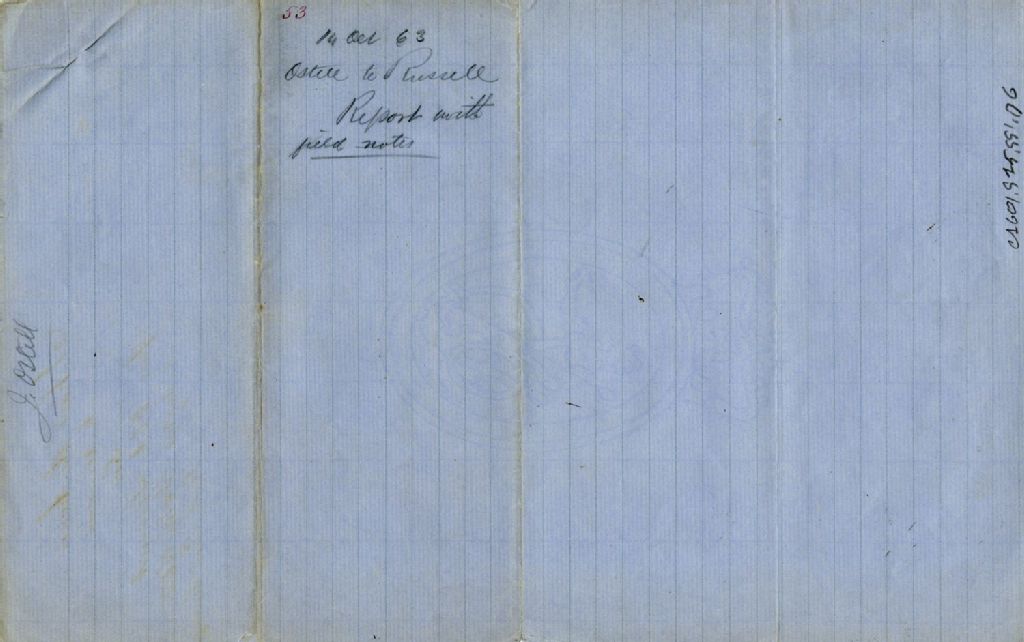 53
14 Oct 63
Ostell to Russell
Report with
field notes
J. Ostell